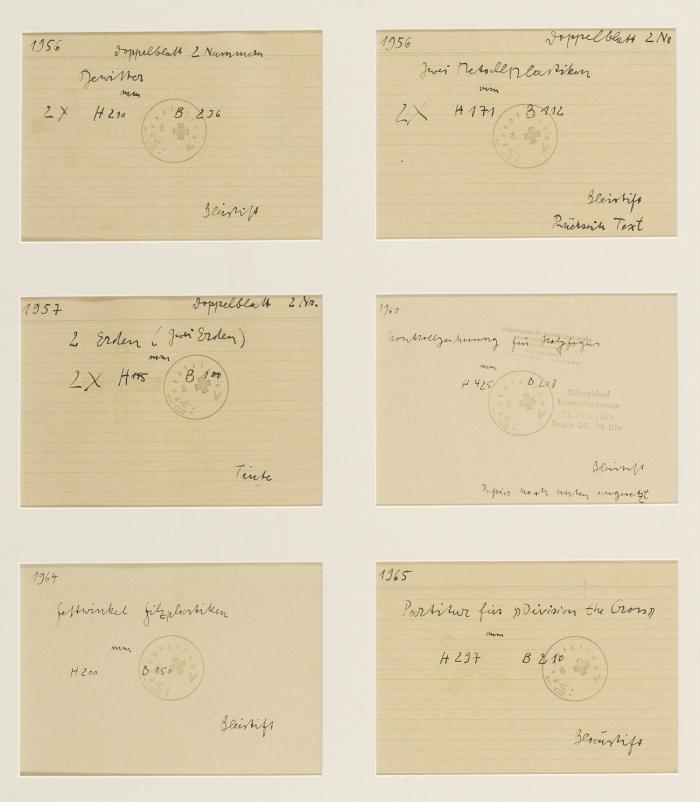 1956
Doppelblatt 2 Nummern
Gewitter
mm
2X H 210 B 296
Bleistift
1956
Doppelblatt 2 Nr
Zwei Metallplastiken
mm
2X H 171 B 112
Bleistift
Rückseite Text
1957
Doppelblatt 2 Nr.
2 Erden (Zwei Erden)
mm
2X H 145 B 100
Tinte
1960
Kontrollzeichnung für Holzfigur
mm
H 425 B 208
Düsseldorf
Kunstakademie
Raum 20 18 Uhr
Bleistift
Papier nach unten angesetzt
1964
Fettwinkel Filzplastiken
mm
H 200 B 150
Bleistift
1965
Partitur für »Division the Cross»
mm
H 297 B 210
Bleistift